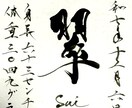 和 年十 月六
翠
Sui
身長 十 センチ
体重三〇四九グラ